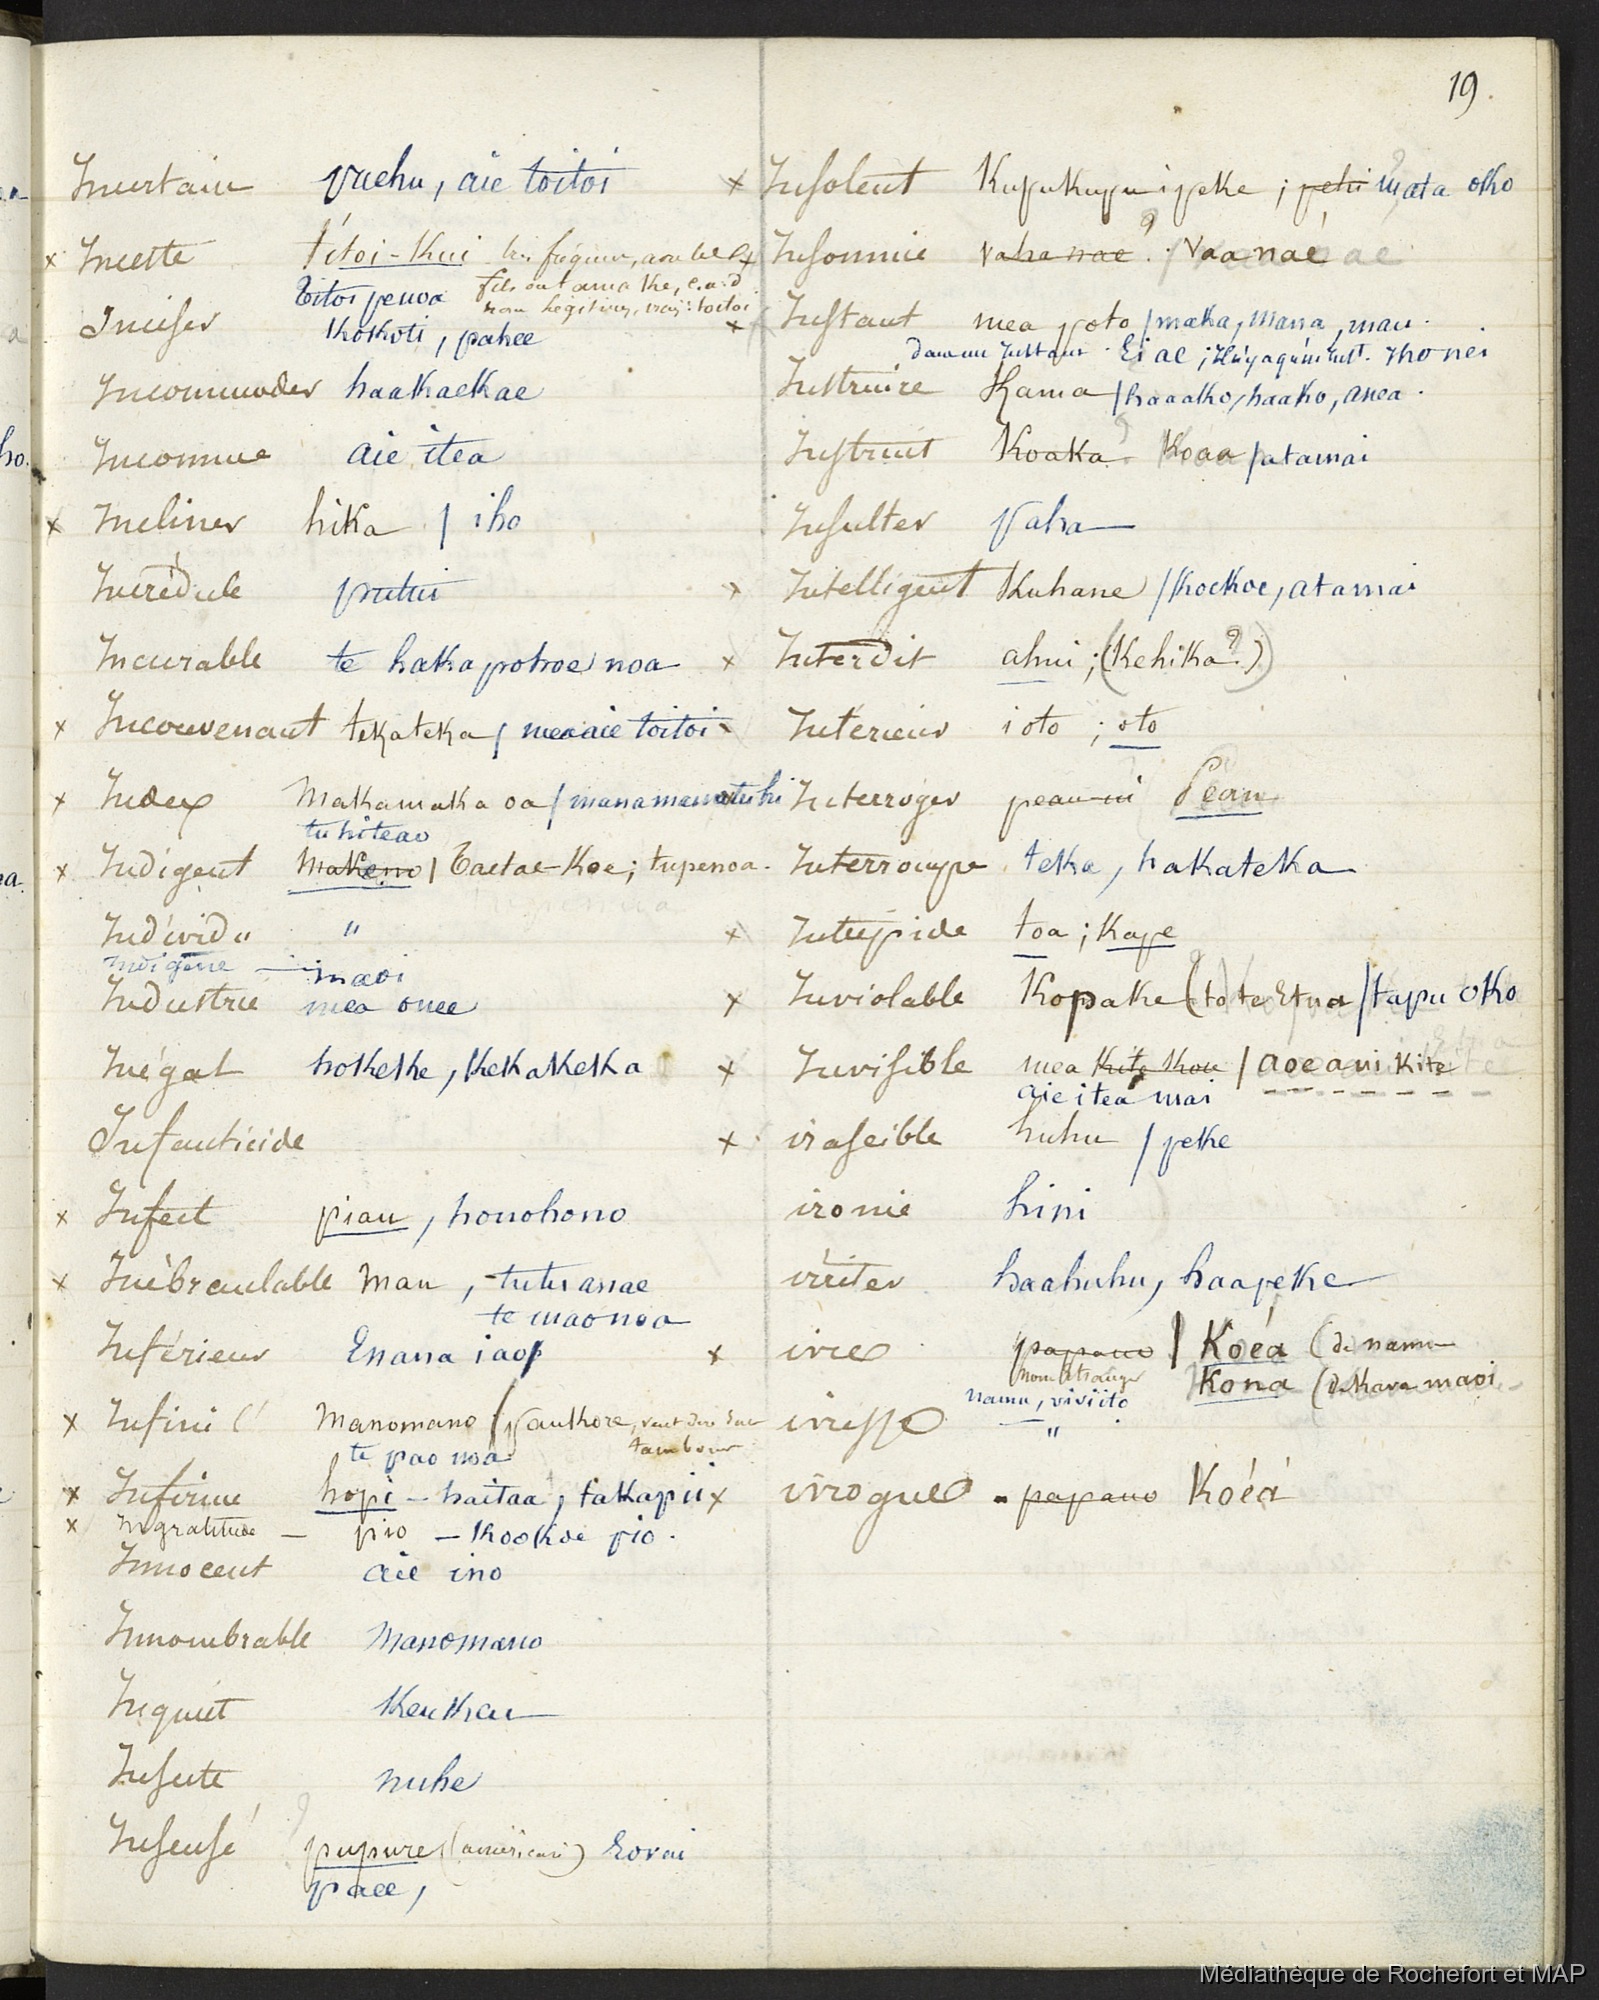 19.
Incertain vuehu, aie toitoi
x Inceste titoi-Kui très fréquent,
toitoi penoa
Inciser Kokoti, pahee
Incommoder haakaekae
Inconnue aie itea
x Incliner hika / iho
Incrédule
Incurable te haka pohoe noa
x Inconvenant tekateka / mea aie toitoi
x Index Makamaka oa / manamana tuhi
tuhiteao
x Indigent Makeno / Taetae-Koe; tupenoa.
Individu "
Indigène — maoi
Industrie mea onee
Inégal hokeke, KekaKeKa
Infanticide
x Infect piau, honohono
x Inébranlable Mau, tutu anae
te mao noa
Inférieur Enana iao
x Infini Manomano / vaukore, veut dire sur
te pao noa tambour
x Infirme hopi - haitaa, takapii
x Ingratitude — pio — Kookoe pio.
Innocent aie ino
Innombrable Manomano
Inquiet Keukeu
Insecte nuhe
Insensé pupure (américain) Eovai
paee,
x Insolent Kupukupu; peke; pehi mata oko
x Insomnie vaha nae ? Vaa naé
x Instant mea poto / maka, mana, mau.
dans un Instant. Ei ae; Il n'y a qu'un inst. Iho nei
Instruire Kama / haaako, haako, anea.
Instruit Koaka ? Koaa / atamai
Insulter vaha
x Intelligent Kuhane / Kockoe, atamai
x Interdit ahui; (Kehika?)
Intérieur i oto; oto
Interroger peau ui Peau
Interrompre teka, hakateka
x Intrépide toa; Kape
x Inviolable Kopake (to te Etua / tapu oko
x Invisible mea Kite Kou / aoe ani kite
aie itea mai
x irascible huhu / peke
ironie hini
irriter haahuhu, haapeke
x ivre papano / Koéa (de namu
nom étranger Kona (de Kava maoi
namu, viviito
ivresse "
x ivrogne papano Koéá
Médiathèque de Rochefort et MAP